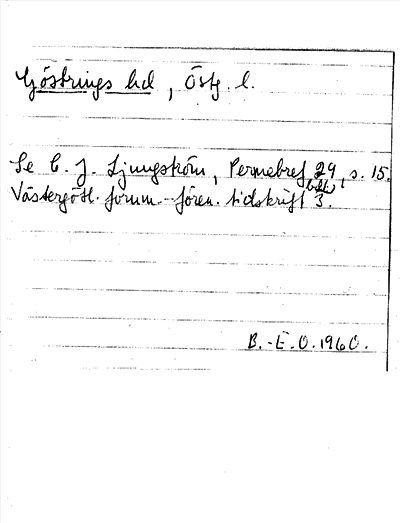 Göstrings hd, Östg. l.
Se C. J. Ljungström, Permebref 29, s. 15.
Västergötl. fornm.-fören. tidskrift 3.
B.-E. O. 1960.